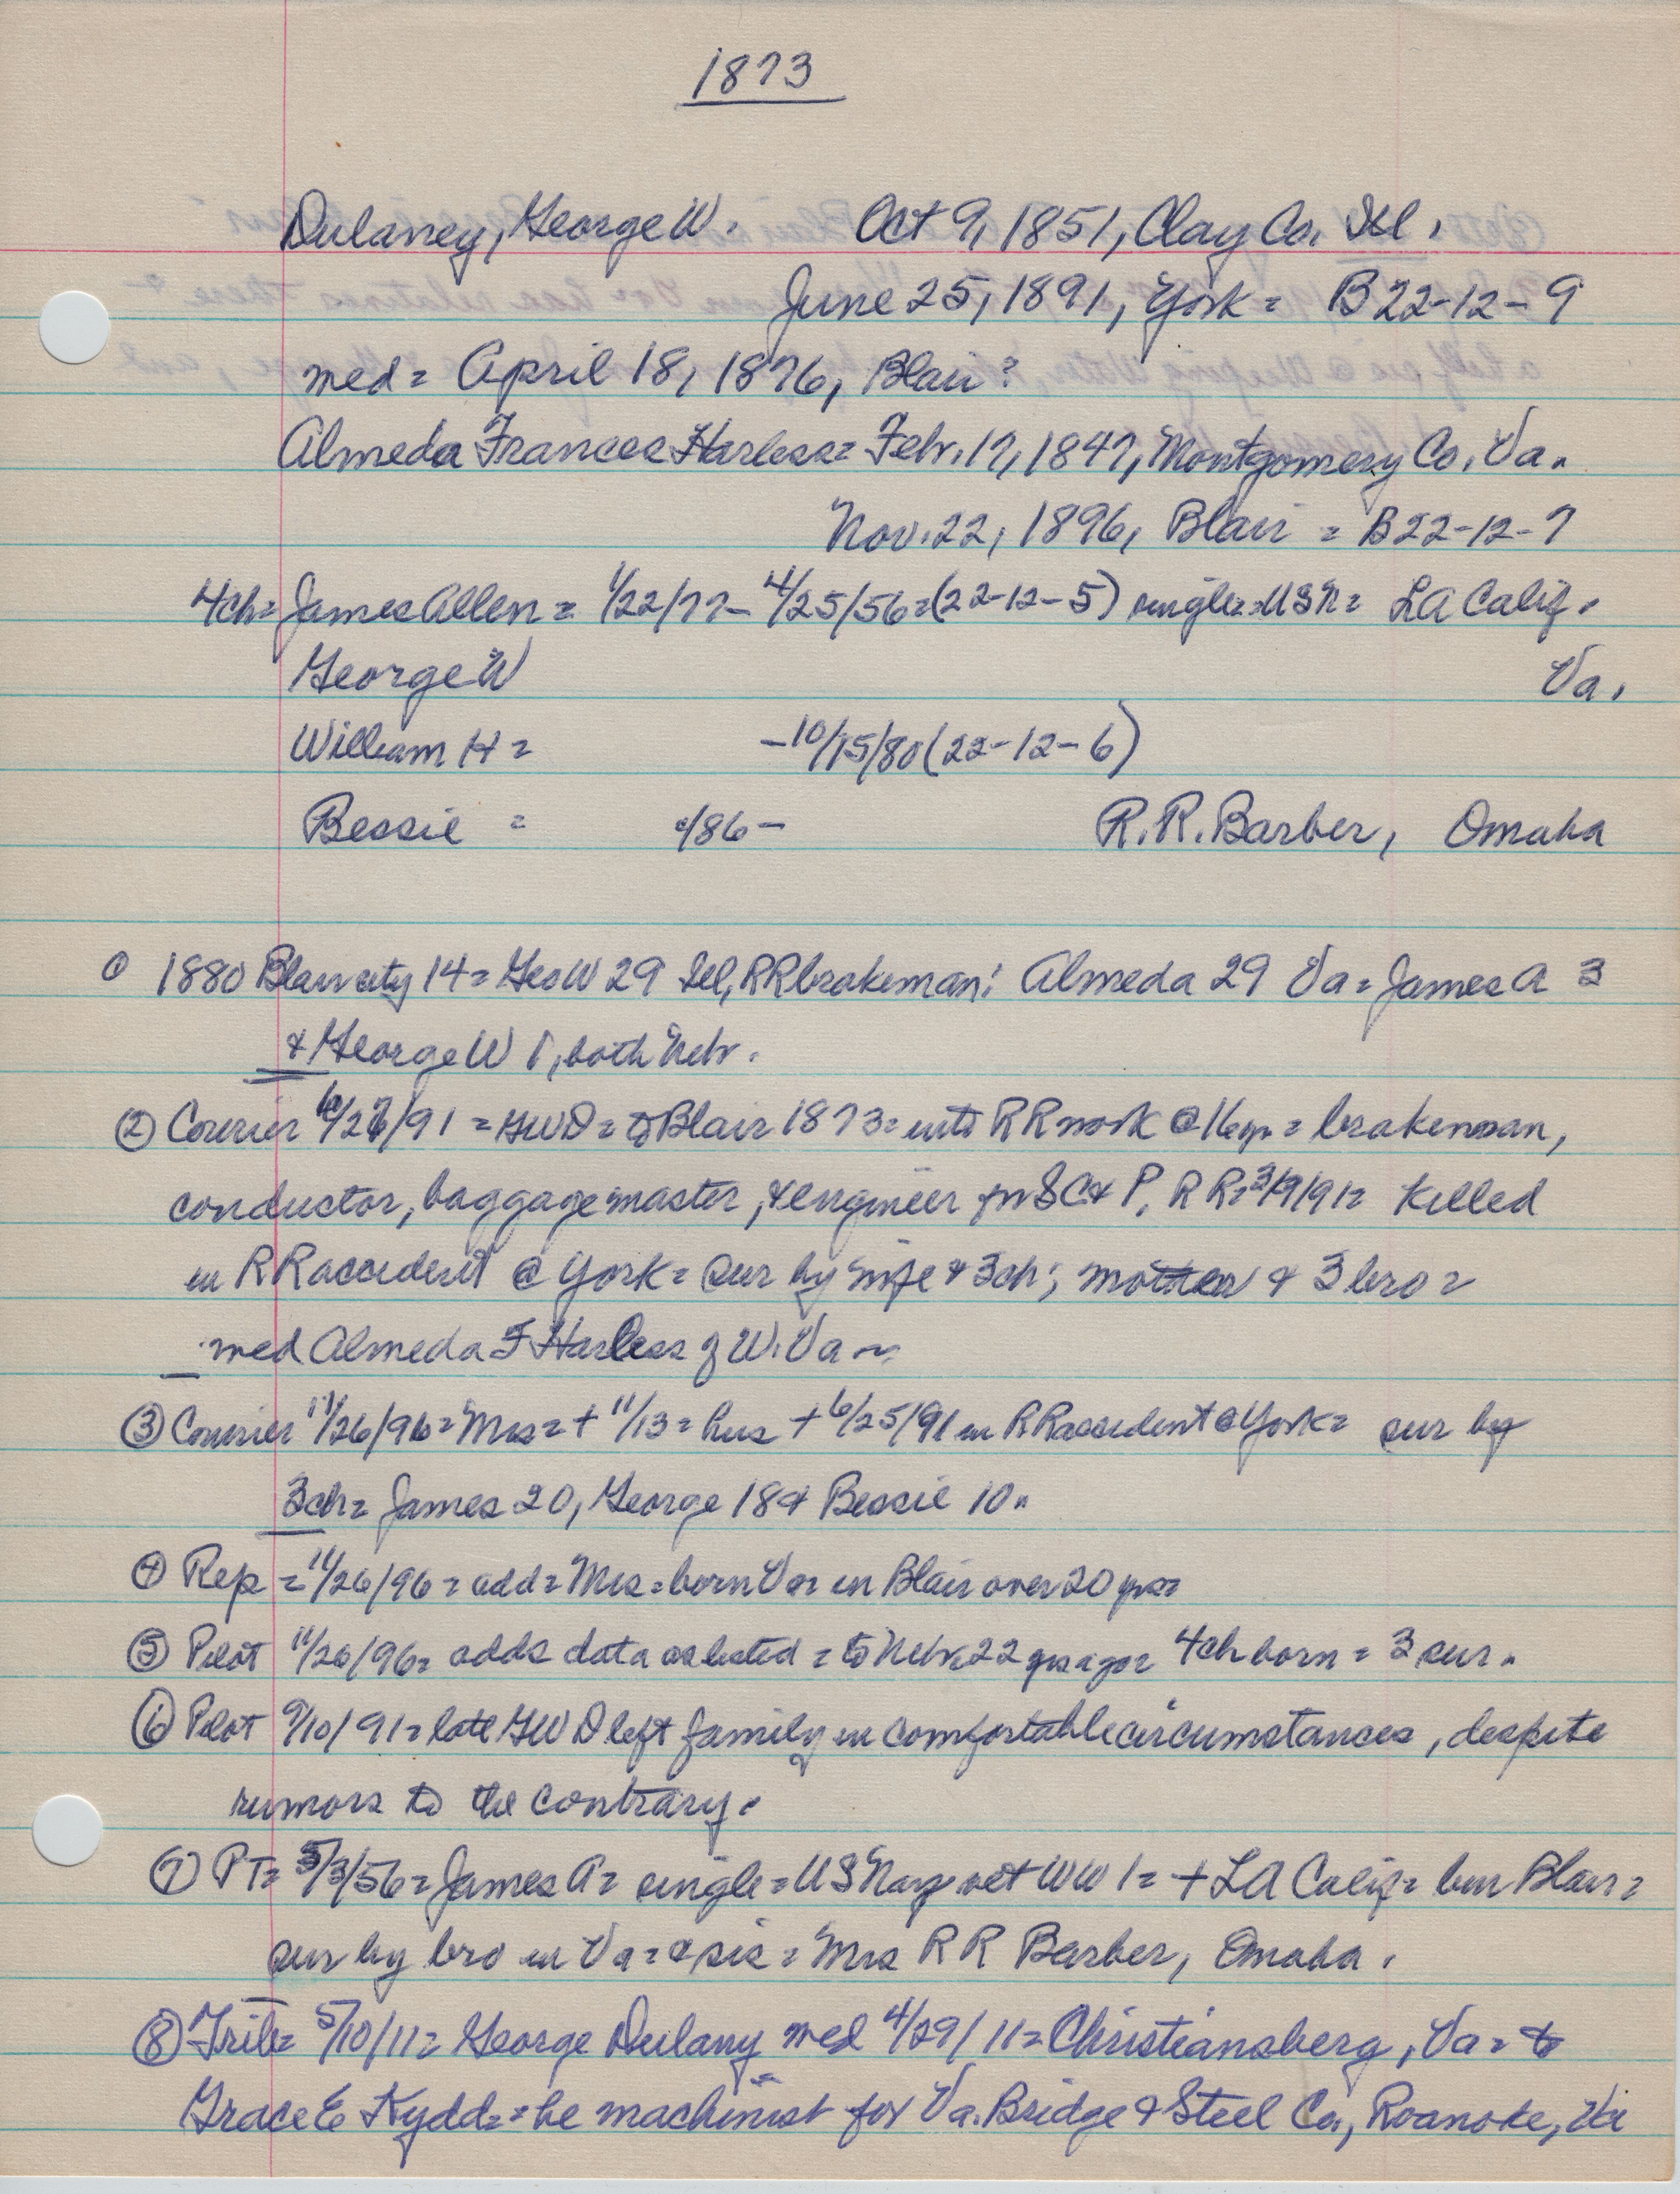 1873
Dulaney, George W. Oct 9, 1851, Clay Co. Ill.
June 25, 1891, York = B22-12-9
med = April 18, 1876, Blair?
Almeda Frances Harless = Febr. 17, 1847, Montgomery Co. Va.
Nov. 22, 1896, Blair = B22-12-7
4ch = James Allen = 1/22/77 - 4/25/56 = (22-12-5) single = USN = LA Calif.
George W Va.
William H = - 10/15/80 (22-12-6)
Bessie = c/86 - R.R. Barber, Omaha
① 1880 Blair city 14 = Geo W 29 Ill, RR brakeman; Almeda 29 Va = James A 3
& George W 1, both Nebr.
② Courier /91 = GWD = to Blair 1873 = into RR work @ 16 yr = brakeman,
conductor, baggage master, & engineer for SC & P, RR = 3/9/91 = Killed
in RR accident @ York = sur by wife & 3ch; mother & 3 bro =
med Almeda F Harless of W. Va ~
③ Courier 11/26/96 = Mrs = + 11/13 = hus + 6/25/91 in RR accident @ York = sur by
3ch = James 20, George 18 & Bessie 10.
④ Rep = 11/26/96 = add = Mrs = born Va = in Blair over 20 yrs =
⑤ Pilot 11/26/96 = adds data as listed = to Nebr 22 yrs ago = 4ch born = 3 sur.
⑥ Pilot 9/10/91 = late GWD left family in comfortable circumstances, despite
rumors to the contrary.
⑦ PT = 5/3/56 = James A = single = US Navy vet WW 1 = + LA Calif = born Blair =
sur by bro in Va = & sis = Mrs RR Barber, Omaha.
⑧ Trib = 5/10/11 = George Dulany med 4/29/11 = Christiansberg, Va = to
Grace E Kydd = he machinist for Va. Bridge & Steel Co., Roanoke, Va